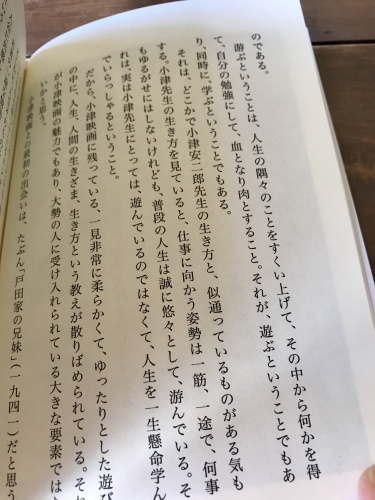 のである。
遊ぶということは、人生の隅々のことをすくい上げて、その中から何かを得
て、自分の勉強にして、血となり肉とすること。それが、遊ぶということでもあ
り、同時に、学ぶということでもある。
それは、どこかで小津安二郎先生の生き方と、似通っているものがある気も
する。小津先生の生き方を見ていると、仕事に向かう姿勢は一筋、一途で、何事
もゆるがせにはしないけれども、普段の人生は誠に悠々として、游んでいる。そ
れは、実は小津先生にとっては、遊んでいるのではなくて、人生を一生懸命学ん
でいらっしゃるということ。
だから、小津映画に残っている、一見非常に柔らかくて、ゆったりとした遊び
の中に、人生、人間の生きざま、生き方という教えが散りばめられている。それ
が小津映画の魅力でもあり、大勢の人に受け入れられている大きな要素では
いかと思う。
小津映画との最初の出会いは、たぶん『戸田家の兄妹』(一九四一)だと思う